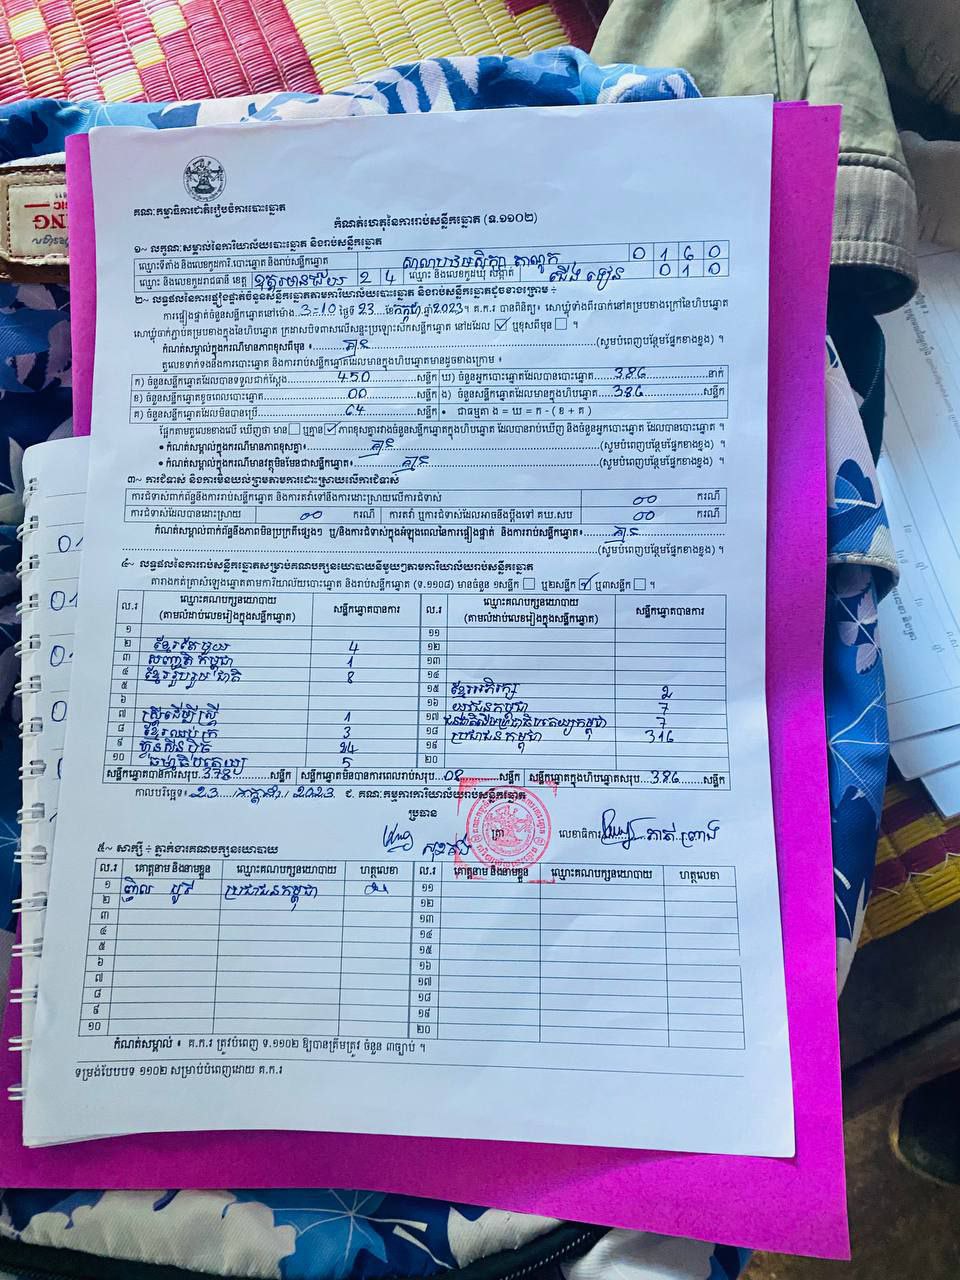 គណៈកម្មាធិការជាតិរៀបចំការបោះឆ្នោត
កំណត់ហេតុនៃការរាប់សន្លឹកឆ្នោត (ទ.១១០២)
១~ លក្ខណៈសម្គាល់នៃការិយាល័យបោះឆ្នោត និងរាប់សន្លឹកឆ្នោត
ឈ្មោះទីតាំង និងលេខកូដការិ.បោះឆ្នោត និងរាប់សន្លឹកឆ្នោត 0 1 6 0
ឈ្មោះ និងលេខកូដរាជធានី ខេត្ត ឧត្តរមានជ័យ 2 4 ឈ្មោះ និងលេខកូដឃុំ សង្កាត់ ជើងទៀន 0 1 0
២~ លទ្ធផលនៃការផ្ទៀងផ្ទាត់ចំនួនសន្លឹកឆ្នោតតាមការិយាល័យបោះឆ្នោត និងរាប់សន្លឹកឆ្នោតដូចខាងក្រោម ÷
ការផ្ទៀងផ្ទាត់ចំនួនសន្លឹកឆ្នោតនៅម៉ោង 3:10 ថ្ងៃទី 23 ខែ កក្កដា ឆ្នាំ 2023។ គ.ក.រ បានពិនិត្យ៖ សោឃ្លុំទាំងពីរចាក់នៅគម្របខាងក្រៅនៃហិបឆ្នោត
សោឃ្លុំចាក់ភ្ជាប់គម្របខាងក្នុងនៃហិបឆ្នោត ក្រដាសបិទពាសលើសន្ទះប្រឡោះស៊កសន្លឹកឆ្នោត នៅដដែល ☑ ឬខុសពីមុន ☐ ។
កំណត់សម្គាល់ក្នុងករណីមានភាពខុសពីមុន ៖ គ្មាន (សូមបំពេញបន្ថែមផ្នែកខាងខ្នង) ។
តួលេខទាក់ទងនឹងការបោះឆ្នោត និងការរាប់សន្លឹកឆ្នោតដែលមានក្នុងហិបឆ្នោតមានដូចខាងក្រោម ៖
ក) ចំនួនសន្លឹកឆ្នោតដែលបានទទួលជាក់ស្តែង 450 សន្លឹក ឃ) ចំនួនអ្នកបោះឆ្នោតដែលបានបោះឆ្នោត 386 នាក់
ខ) ចំនួនសន្លឹកឆ្នោតខូចពេលបោះឆ្នោត 00 សន្លឹក ង) ចំនួនសន្លឹកឆ្នោតដែលមានក្នុងហិបឆ្នោត 386 សន្លឹក
គ) ចំនួនសន្លឹកឆ្នោតដែលមិនបានប្រើ 64 សន្លឹក • ជាធម្មតា ង = ឃ = ក - (ខ + គ)
ផ្អែកតាមតួលេខខាងលើ ឃើញថា មាន ☐ ឬគ្មាន ☑ ភាពខុសគ្នារវាងចំនួនសន្លឹកឆ្នោតក្នុងហិបឆ្នោត ដែលបានរាប់ឃើញ និងចំនួនអ្នកបោះឆ្នោត ដែលបានបោះឆ្នោត ។
• កំណត់សម្គាល់ក្នុងករណីមានភាពខុសគ្នា៖ គ្មាន (សូមបំពេញបន្ថែមផ្នែកខាងខ្នង) ។
• កំណត់សម្គាល់ក្នុងករណីមានវត្ថុមិនមែនជាសន្លឹកឆ្នោត៖ គ្មាន (សូមបំពេញបន្ថែមផ្នែកខាងខ្នង) ។
៣~ ការជំទាស់ និងការមិនយល់ព្រមតាមការដោះស្រាយលើការជំទាស់
ការជំទាស់ពាក់ព័ន្ធនឹងការរាប់សន្លឹកឆ្នោត និងការតវ៉ាទៅនឹងការដោះស្រាយលើការជំទាស់ 00 ករណី
ការជំទាស់ដែលបានដោះស្រាយ 00 ករណី ការតវ៉ា ឬការជំទាស់ដែលអាចនឹងប្តឹងទៅ គឃ.សប 00 ករណី
កំណត់សម្គាល់ពាក់ព័ន្ធនឹងភាពមិនប្រក្រតីផ្សេងៗ ឬ/និងការជំទាស់ក្នុងអំឡុងពេលនៃការផ្ទៀងផ្ទាត់ និងការរាប់សន្លឹកឆ្នោត៖ គ្មាន
(សូមបំពេញបន្ថែមផ្នែកខាងខ្នង) ។
៤~ លទ្ធផលនៃការរាប់សន្លឹកឆ្នោតសម្រាប់គណបក្សនយោបាយនីមួយៗតាមការិយាល័យរាប់សន្លឹកឆ្នោត
តារាងកត់ត្រាសំឡេងឆ្នោតតាមការិយាល័យបោះឆ្នោត និងរាប់សន្លឹកឆ្នោត (ទ.១១០៨) មានចំនួន ១សន្លឹក ☐ ឬ២សន្លឹក ☑ ឬ៣សន្លឹក ☐ ។
ល.រ ឈ្មោះគណបក្សនយោបាយ (តាមលំដាប់លេខរៀងក្នុងសន្លឹកឆ្នោត) សន្លឹកឆ្នោតបានការ ល.រ ឈ្មោះគណបក្សនយោបាយ (តាមលំដាប់លេខរៀងក្នុងសន្លឹកឆ្នោត) សន្លឹកឆ្នោតបានការ
១ ១១
២ ខ្មែរតែមួយ 4 ១២
៣ សញ្ជាតិកម្ពុជា 1 ១៣
៤ ខ្មែររួបរួមជាតិ 8 ១៤
៥ ១៥ ខ្មែរអភិរក្ស 2
៦ ១៦ យុវជនកម្ពុជា 7
៧ ស្ត្រីដើម្បីស្ត្រី 1 ១៧ 7
៨ 3 ១៨ ប្រជាជនកម្ពុជា 316
៩ ហ្វ៊ុនស៊ិនប៉ិច 24 ១៩
១០ ធម្មាធិបតេយ្យ 5 ២០
សន្លឹកឆ្នោតបានការសរុប 378 សន្លឹក សន្លឹកឆ្នោតមិនបានការពេលរាប់សរុប 08 សន្លឹក សន្លឹកឆ្នោតក្នុងហិបឆ្នោតសរុប 386 សន្លឹក
កាលបរិច្ឆេទ៖ 23 / កក្កដា / 2023 ជ. គណៈកម្មការការិយាល័យរាប់សន្លឹកឆ្នោត
ប្រធាន ត្រា លេខាធិការ
៥~ សាក្សី ÷ ភ្នាក់ងារគណបក្សនយោបាយ
ល.រ គោត្តនាម និងនាមខ្លួន ឈ្មោះគណបក្សនយោបាយ ហត្ថលេខា ល.រ គោត្តនាម និងនាមខ្លួន ឈ្មោះគណបក្សនយោបាយ ហត្ថលេខា
១ ប្រជាជនកម្ពុជា ១១
២ ១២
៣ ១៣
៤ ១៤
៥ ១៥
៦ ១៦
៧ ១៧
៨ ១៨
៩ ១៩
១០ ២០
កំណត់សម្គាល់ ៖ គ.ក.រ ត្រូវបំពេញ ទ.១១០២ ឱ្យបានត្រឹមត្រូវ ចំនួន ៣ច្បាប់ ។
ទម្រង់បែបបទ ១១០២ សម្រាប់បំពេញដោយ គ.ក.រ